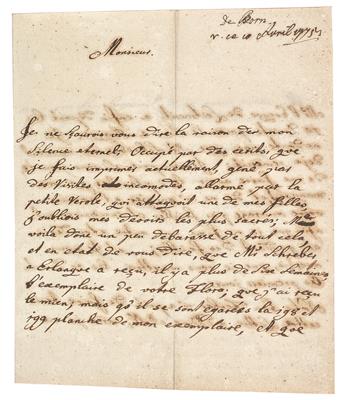 de Born.
r. ce 10 Avril 1775
Monsieur.
Je ne saurois vous dire la raison de mon
silence eternel; Occupé par des ecrits, que
je fais imprimer actuellement, gené par
des Visites incomodes, allarmé par la
petite Verole, qui attaquoit une de mes filles,
j'oubliois mes devoirs les plus sacrés;
voila donc un peu debarassé de tout cela,
et en etat de vous dire, que Mr Schreber
a Erlangue a reçu, il y a plus de Six Semaines
l'exemplaire de votre Flora; que j'ai reçu
le mien; mais qu'il se sont egarées la 198 et
199 planche de mon exemplaire, et que